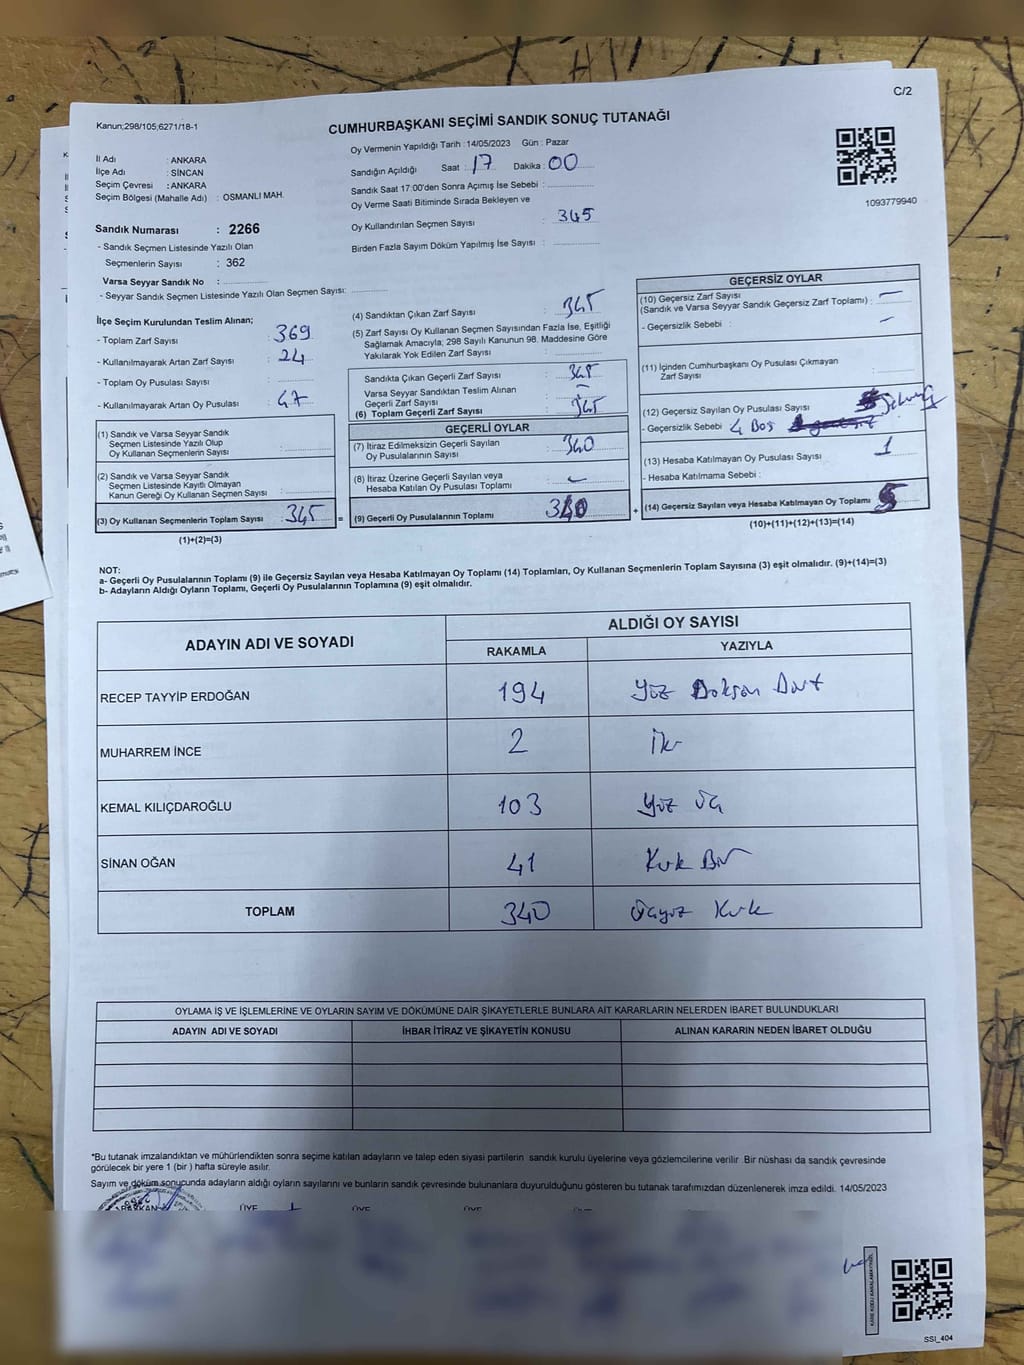 C/2
Kanun;298/105;6271/18-1
CUMHURBAŞKANI SEÇİMİ SANDIK SONUÇ TUTANAĞI
İl Adı : ANKARA
İlçe Adı : SİNCAN
Seçim Çevresi : ANKARA
Seçim Bölgesi (Mahalle Adı) : OSMANLI MAH.
Sandık Numarası : 2266
- Sandık Seçmen Listesinde Yazılı Olan
Seçmenlerin Sayısı : 362
Varsa Seyyar Sandık No :
- Seyyar Sandık Seçmen Listesinde Yazılı Olan Seçmen Sayısı:
Oy Vermenin Yapıldığı Tarih : 14/05/2023 Gün : Pazar
Sandığın Açıldığı Saat : 17 Dakika : 00
Sandık Saat 17:00'den Sonra Açımış İse Sebebi :
Oy Verme Saati Bitiminde Sırada Bekleyen ve
Oy Kullandırılan Seçmen Sayısı : 345
Birden Fazla Sayım Döküm Yapılmış İse Sayısı :
1093779940
İlçe Seçim Kurulundan Teslim Alınan;
- Toplam Zarf Sayısı : 369
- Kullanılmayarak Artan Zarf Sayısı : 24
- Toplam Oy Pusulası Sayısı :
- Kullanılmayarak Artan Oy Pusulası : 47
(1) Sandık ve Varsa Seyyar Sandık
Seçmen Listesinde Yazılı Olup
Oy Kullanan Seçmenlerin Sayısı :
(2) Sandık ve Varsa Seyyar Sandık
Seçmen Listesinde Kayıtlı Olmayan
Kanun Gereği Oy Kullanan Seçmen Sayısı :
(3) Oy Kullanan Seçmenlerin Toplam Sayısı : 345 =
(1)+(2)=(3)
(4) Sandıktan Çıkan Zarf Sayısı : 345
(5) Zarf Sayısı Oy Kullanan Seçmen Sayısından Fazla İse, Eşitliği
Sağlamak Amacıyla; 298 Sayılı Kanunun 98. Maddesine Göre
Yakılarak Yok Edilen Zarf Sayısı :
Sandıkta Çıkan Geçerli Zarf Sayısı : 345
Varsa Seyyar Sandıktan Teslim Alınan
Geçerli Zarf Sayısı : –
(6) Toplam Geçerli Zarf Sayısı : 345
GEÇERLİ OYLAR
(7) İtiraz Edilmeksizin Geçerli Sayılan
Oy Pusulalarının Sayısı : 340
(8) İtiraz Üzerine Geçerli Sayılan veya
Hesaba Katılan Oy Pusulası Toplamı : –
(9) Geçerli Oy Pusulalarının Toplamı : 340 +
GEÇERSİZ OYLAR
(10) Geçersiz Zarf Sayısı
(Sandık ve Varsa Seyyar Sandık Geçersiz Zarf Toplamı) : –
- Geçersizlik Sebebi : –
(11) İçinden Cumhurbaşkanı Oy Pusulası Çıkmayan
Zarf Sayısı :
(12) Geçersiz Sayılan Oy Pusulası Sayısı
- Geçersizlik Sebebi 4 Boş
(13) Hesaba Katılmayan Oy Pusulası Sayısı : 1
- Hesaba Katılmama Sebebi :
(14) Geçersiz Sayılan veya Hesaba Katılmayan Oy Toplamı 5
(10)+(11)+(12)+(13)=(14)
NOT:
a- Geçerli Oy Pusulalarının Toplamı (9) ile Geçersiz Sayılan veya Hesaba Katılmayan Oy Toplamı (14) Toplamları, Oy Kullanan Seçmenlerin Toplam Sayısına (3) eşit olmalıdır. (9)+(14)=(3)
b- Adayların Aldığı Oyların Toplamı, Geçerli Oy Pusulalarının Toplamına (9) eşit olmalıdır.
ADAYIN ADI VE SOYADI
ALDIĞI OY SAYISI
RAKAMLA YAZIYLA
RECEP TAYYİP ERDOĞAN 194 Yüz Doksan Dört
MUHARREM İNCE 2 İki
KEMAL KILIÇDAROĞLU 103 Yüz üç
SİNAN OĞAN 41 Kırk Bir
TOPLAM 340 üçyüz Kırk
OYLAMA İŞ VE İŞLEMLERİNE VE OYLARIN SAYIM VE DÖKÜMÜNE DAİR ŞİKAYETLERLE BUNLARA AİT KARARLARIN NELERDEN İBARET BULUNDUKLARI
ADAYIN ADI VE SOYADI İHBAR İTİRAZ VE ŞİKAYETİN KONUSU ALINAN KARARIN NEDEN İBARET OLDUĞU
*Bu tutanak imzalandıktan ve mühürlendikten sonra seçime katılan adayların ve talep eden siyasi partilerin sandık kurulu üyelerine veya gözlemcilerine verilir. Bir nüshası da sandık çevresinde
görülecek bir yere 1 (bir) hafta süreyle asılır.
Sayım ve döküm sonucunda adayların aldığı oyların sayılarını ve bunların sandık çevresinde bulunanlara duyurulduğunu gösteren bu tutanak tarafımızdan düzenlenerek imza edildi. 14/05/2023
BAŞKAN ÜYE ÜYE ÜYE ÜYE
KARE KODU KARALAMAYINIZ.
SSI_404